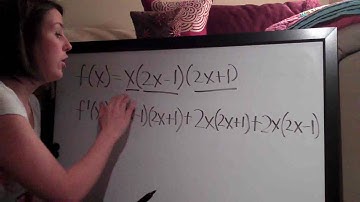 f(x)=x(2x-1)(2x+1)
f'(x) -1)(2x+1)+2x(2x+1)+2x(2x-1)